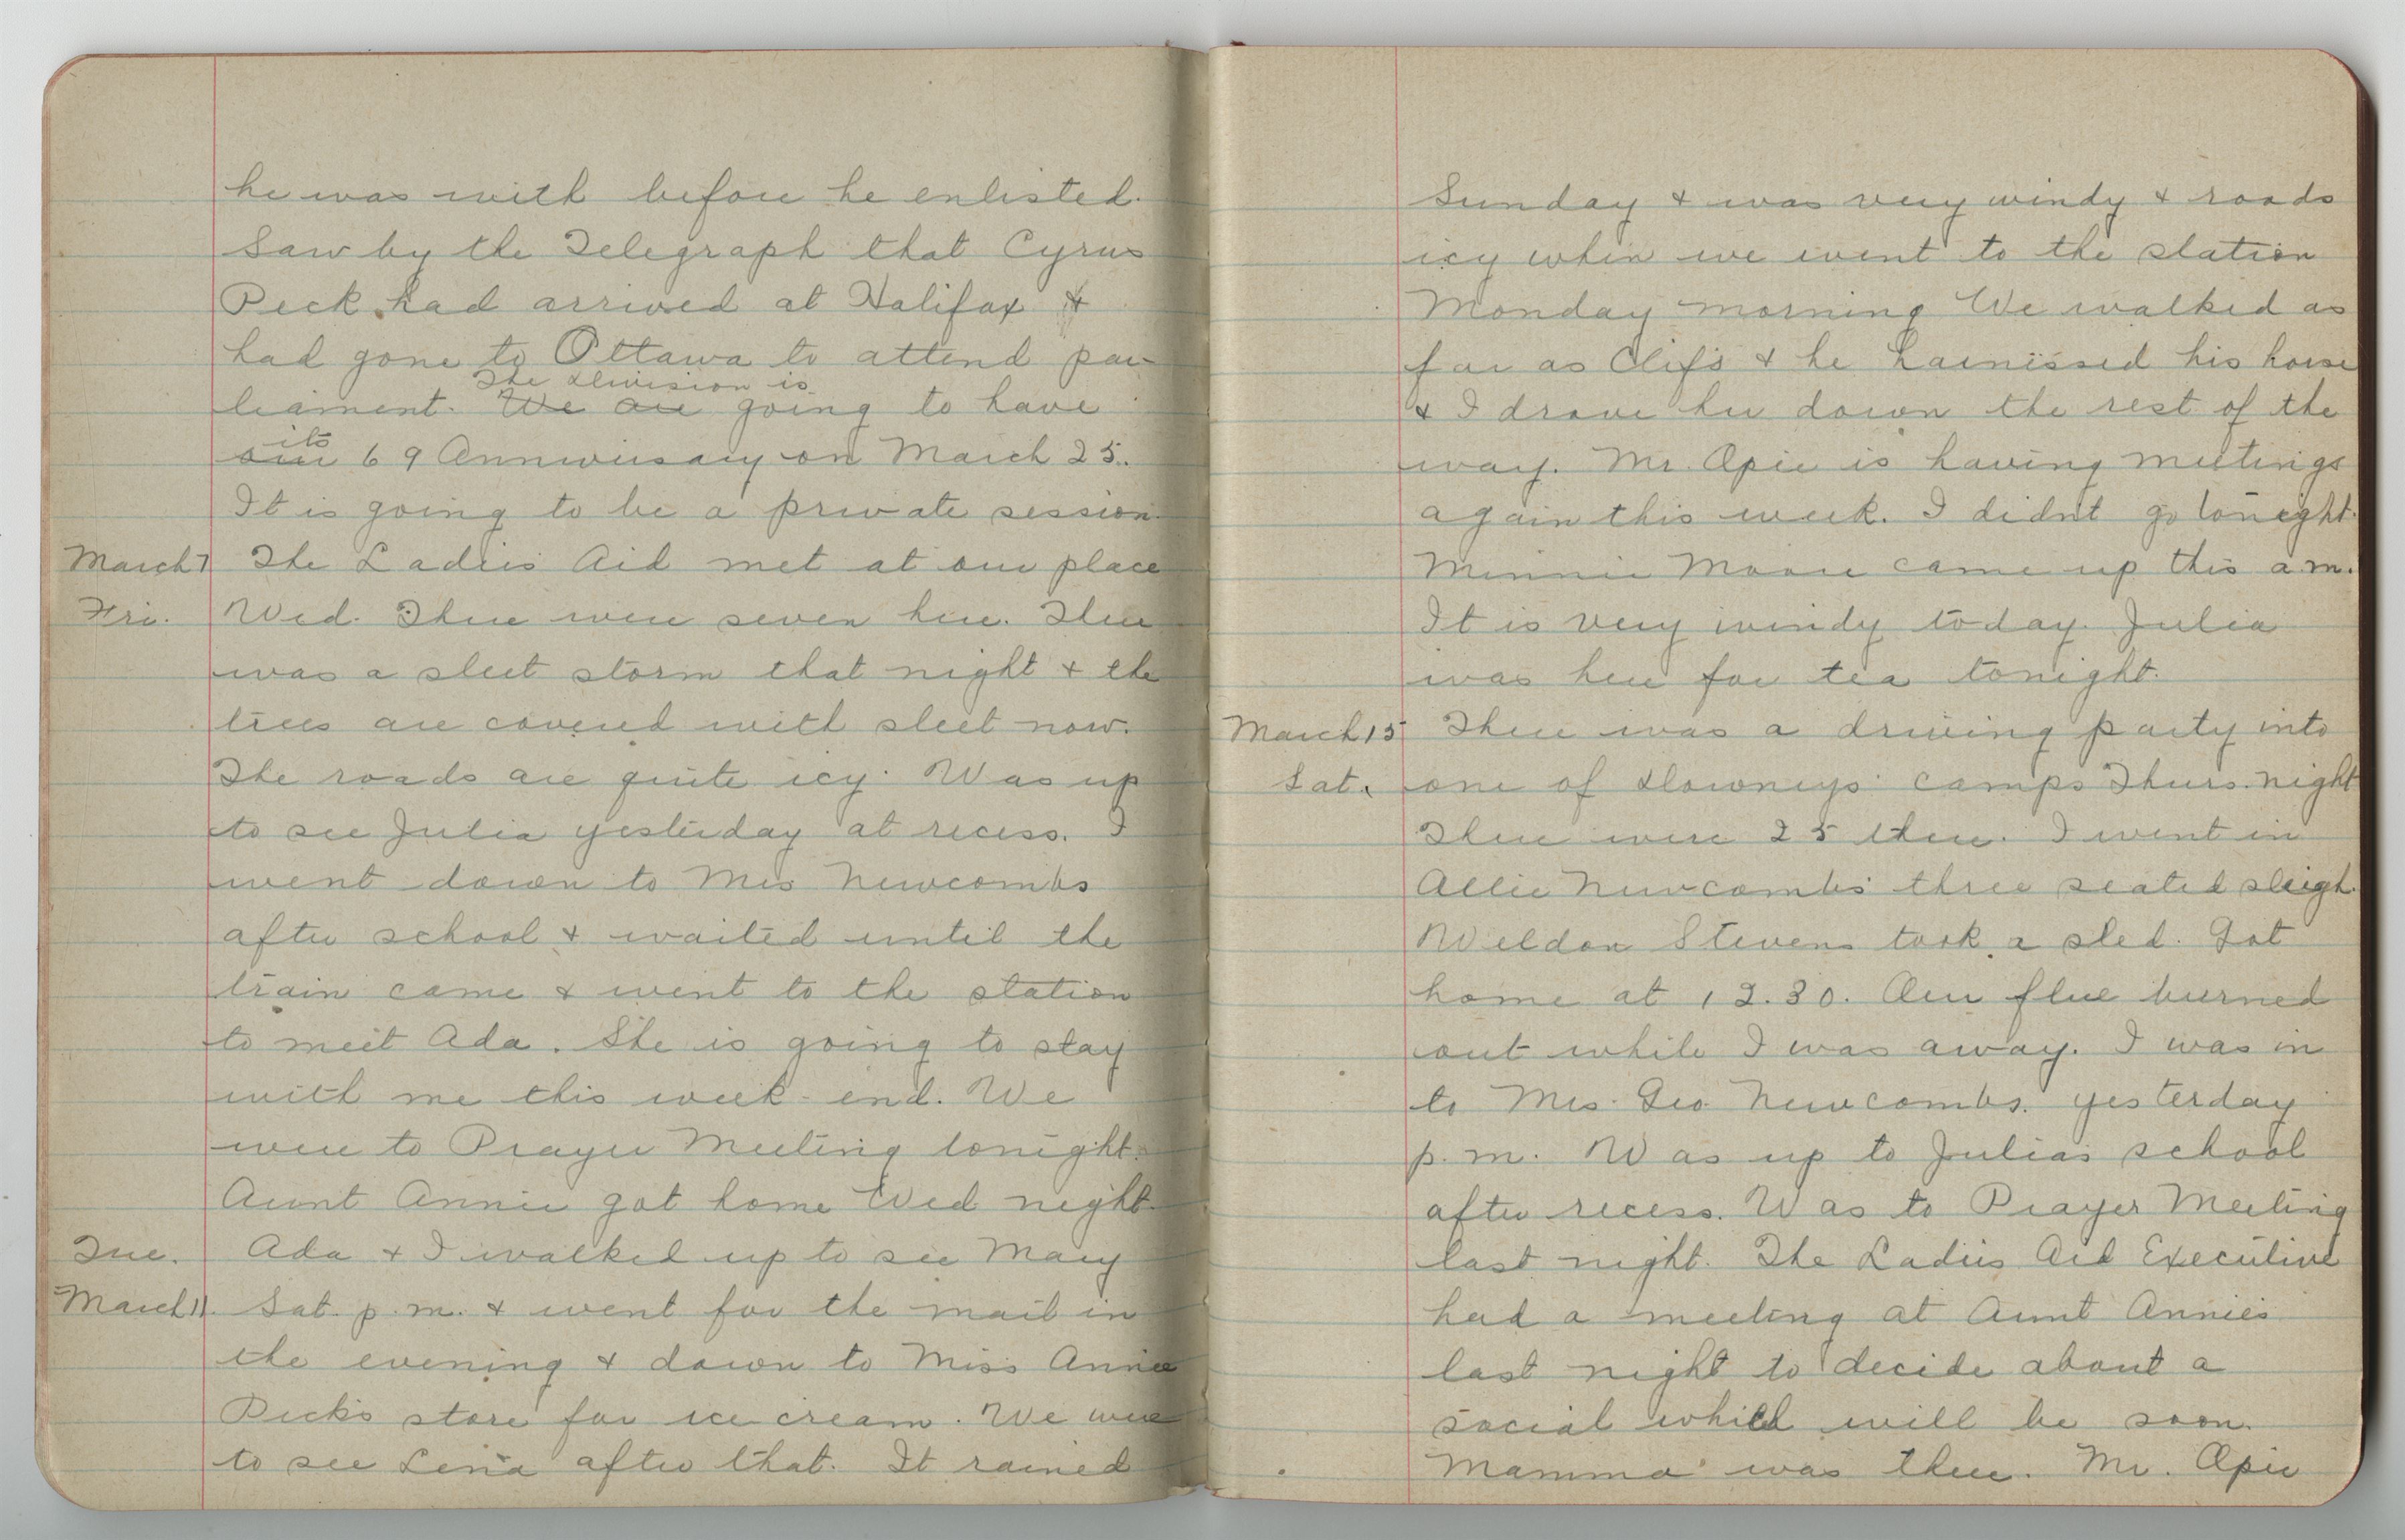 he was with before he enlisted.
Saw by the Telegraph that Cyrus
Peck had arrived at Halifax &
had gone to Ottawa to attend par-
The Division is
liament. We are going to have
its
our 69 Anniversary on March 25.
It is going to be a private session.
March 7 The Ladies Aid met at our place
Fri. Wed. There were seven here. There
was a sleet storm that night & the
trees are covered with sleet now.
The roads are quite icy. Was up
to see Julia yesterday at recess. I
went down to Mrs Newcombs
after school & waited until the
train came & went to the station
to meet Ada. She is going to stay
with me this week-end. We
were to Prayer Meeting tonight.
Aunt Annie got home Wed night.
Tue. Ada & I walked up to see Mary
March 11. Sat. p.m. & went for the mail in
the evening & down to Miss Annie
Peck's store for ice cream. We were
to see Lena after that. It rained
Sunday & was very windy & roads
icy when we went to the station
Monday morning We walked as
far as Clif's & he harnessed his horse
& I drove her down the rest of the
way. Mr. Opie is having meetings
again this week. I didn't go tonight.
Minnie Moore came up this a.m.
It is very windy today. Julia
was here for tea tonight.
March 15 There was a driving party into
Sat. one of Downeys' camps Thurs. night
There were 25 there. I went in
Allie Newcombs' three seated sleigh.
Weldon Stevens took a sled. Got
home at 12.30. Our flue burned
out while I was away. I was in
to Mrs. Geo. Newcombs. yesterday
p.m. Was up to Julia's school
after recess. Was to Prayer Meeting
last night. The Ladies Aid Executive
had a meeting at Aunt Annie's
last night to decide about a
social which will be soon.
Mamma was there. Mr. Opie